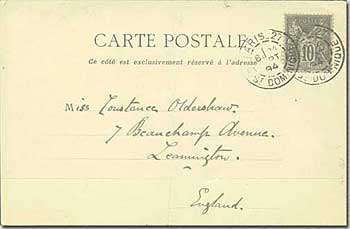 CARTE POSTALE
Ce côté est exclusivement réservé à l'adresse
PARIS
94
10
Miss Constance Oldershaw
7 Beauchamp Avenue.
Leamington.
England.